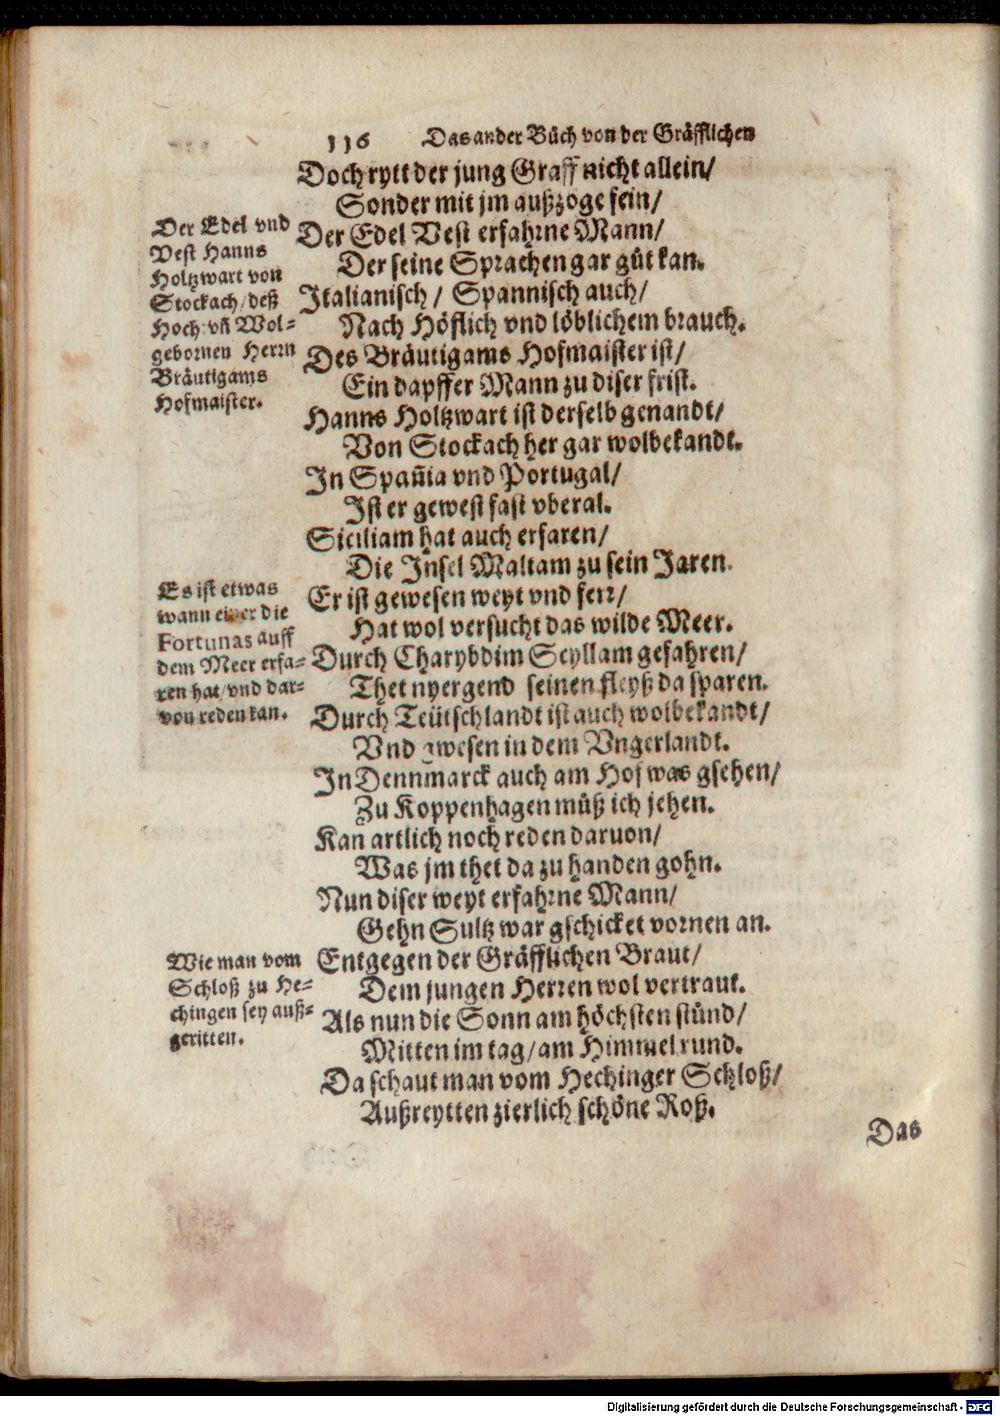 116 Das ander Bůch von der Gräfflichen
Doch rytt der jung Graff nicht allein/
Sonder mit jm außzoge fein/
Der Edel vnd
Vest Hanns
Holtzwart von
Stockach/deß
Hoch: vñ Wol-
gebornen Herrn
Bräutigams
Hofmaister.
Der Edel Vest erfahrne Mann/
Der seine Sprachen gar gůt kan.
Italianisch/ Spannisch auch/
Nach Höflich vnd löblichem brauch.
Des Bräutigams Hofmaister ist/
Ein dapffer Mann zu diser frist.
Hanns Holtzwart ist derselb genandt/
Von Stockach her gar wolbekandt.
In Spañia vnd Portugal/
Ist er gewest fast vberal.
Siciliam hat auch erfaren/
Die Insel Maltam zu sein Jaren.
Es ist etwas
wann einer die
Fortunas auff
dem Meer erfa-
ren hat/vnd dar-
von reden kan.
Er ist gewesen weyt vnd ferr/
Hat wol versucht das wilde Meer.
Durch Charybdim Scyllam gefahren/
Thet nyergend seinen fleyß da sparen.
Durch Teütschlandt ist auch wolbekandt/
Vnd gwesen in dem Vngerlandt.
In Dennmarck auch am Hof was gsehen/
Zu Koppenhagen můß ich jehen.
Kan artlich noch reden daruon/
Was jm thet da zu handen gohn.
Nun diser weyt erfahrne Mann/
Gehn Sultz war gschicket vornen an.
Wie man vom
Schloß zu He-
chingen sey auß-
geritten.
Entgegen der Gräfflichen Braut/
Dem jungen Herren wol vertraut.
Als nun die Sonn am höchsten stůnd/
Mitten im tag/am Himmel rund.
Da schaut man vom Hechinger Schloß/
Außreytten zierlich schöne Roß.
Das
Digitalisierung gefördert durch die Deutsche Forschungsgemeinschaft - DFG